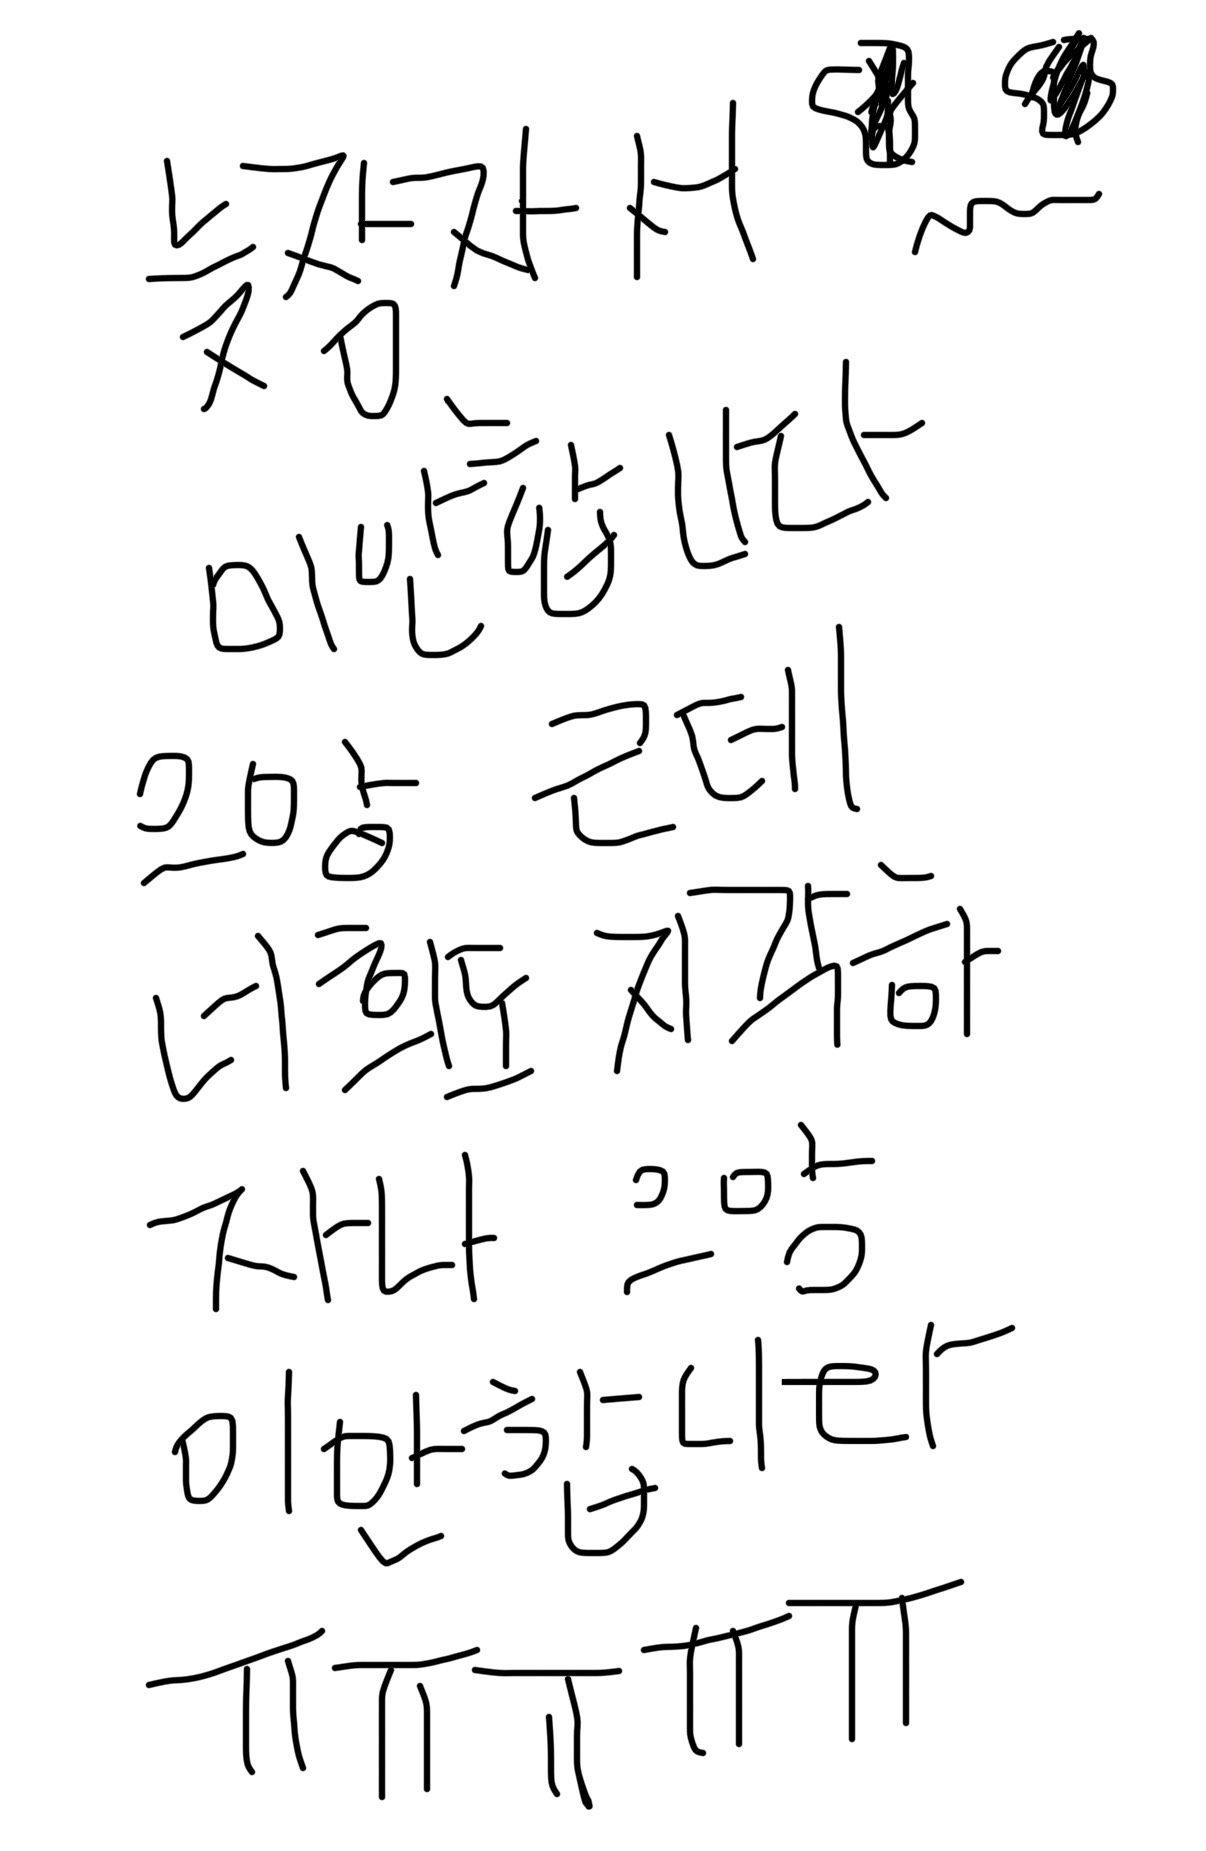 늦잠자서
미안합니다
으앙 근데
너희도 지각하
자나 으앙
미안합니다
ㅠㅠㅠㅠㅠ